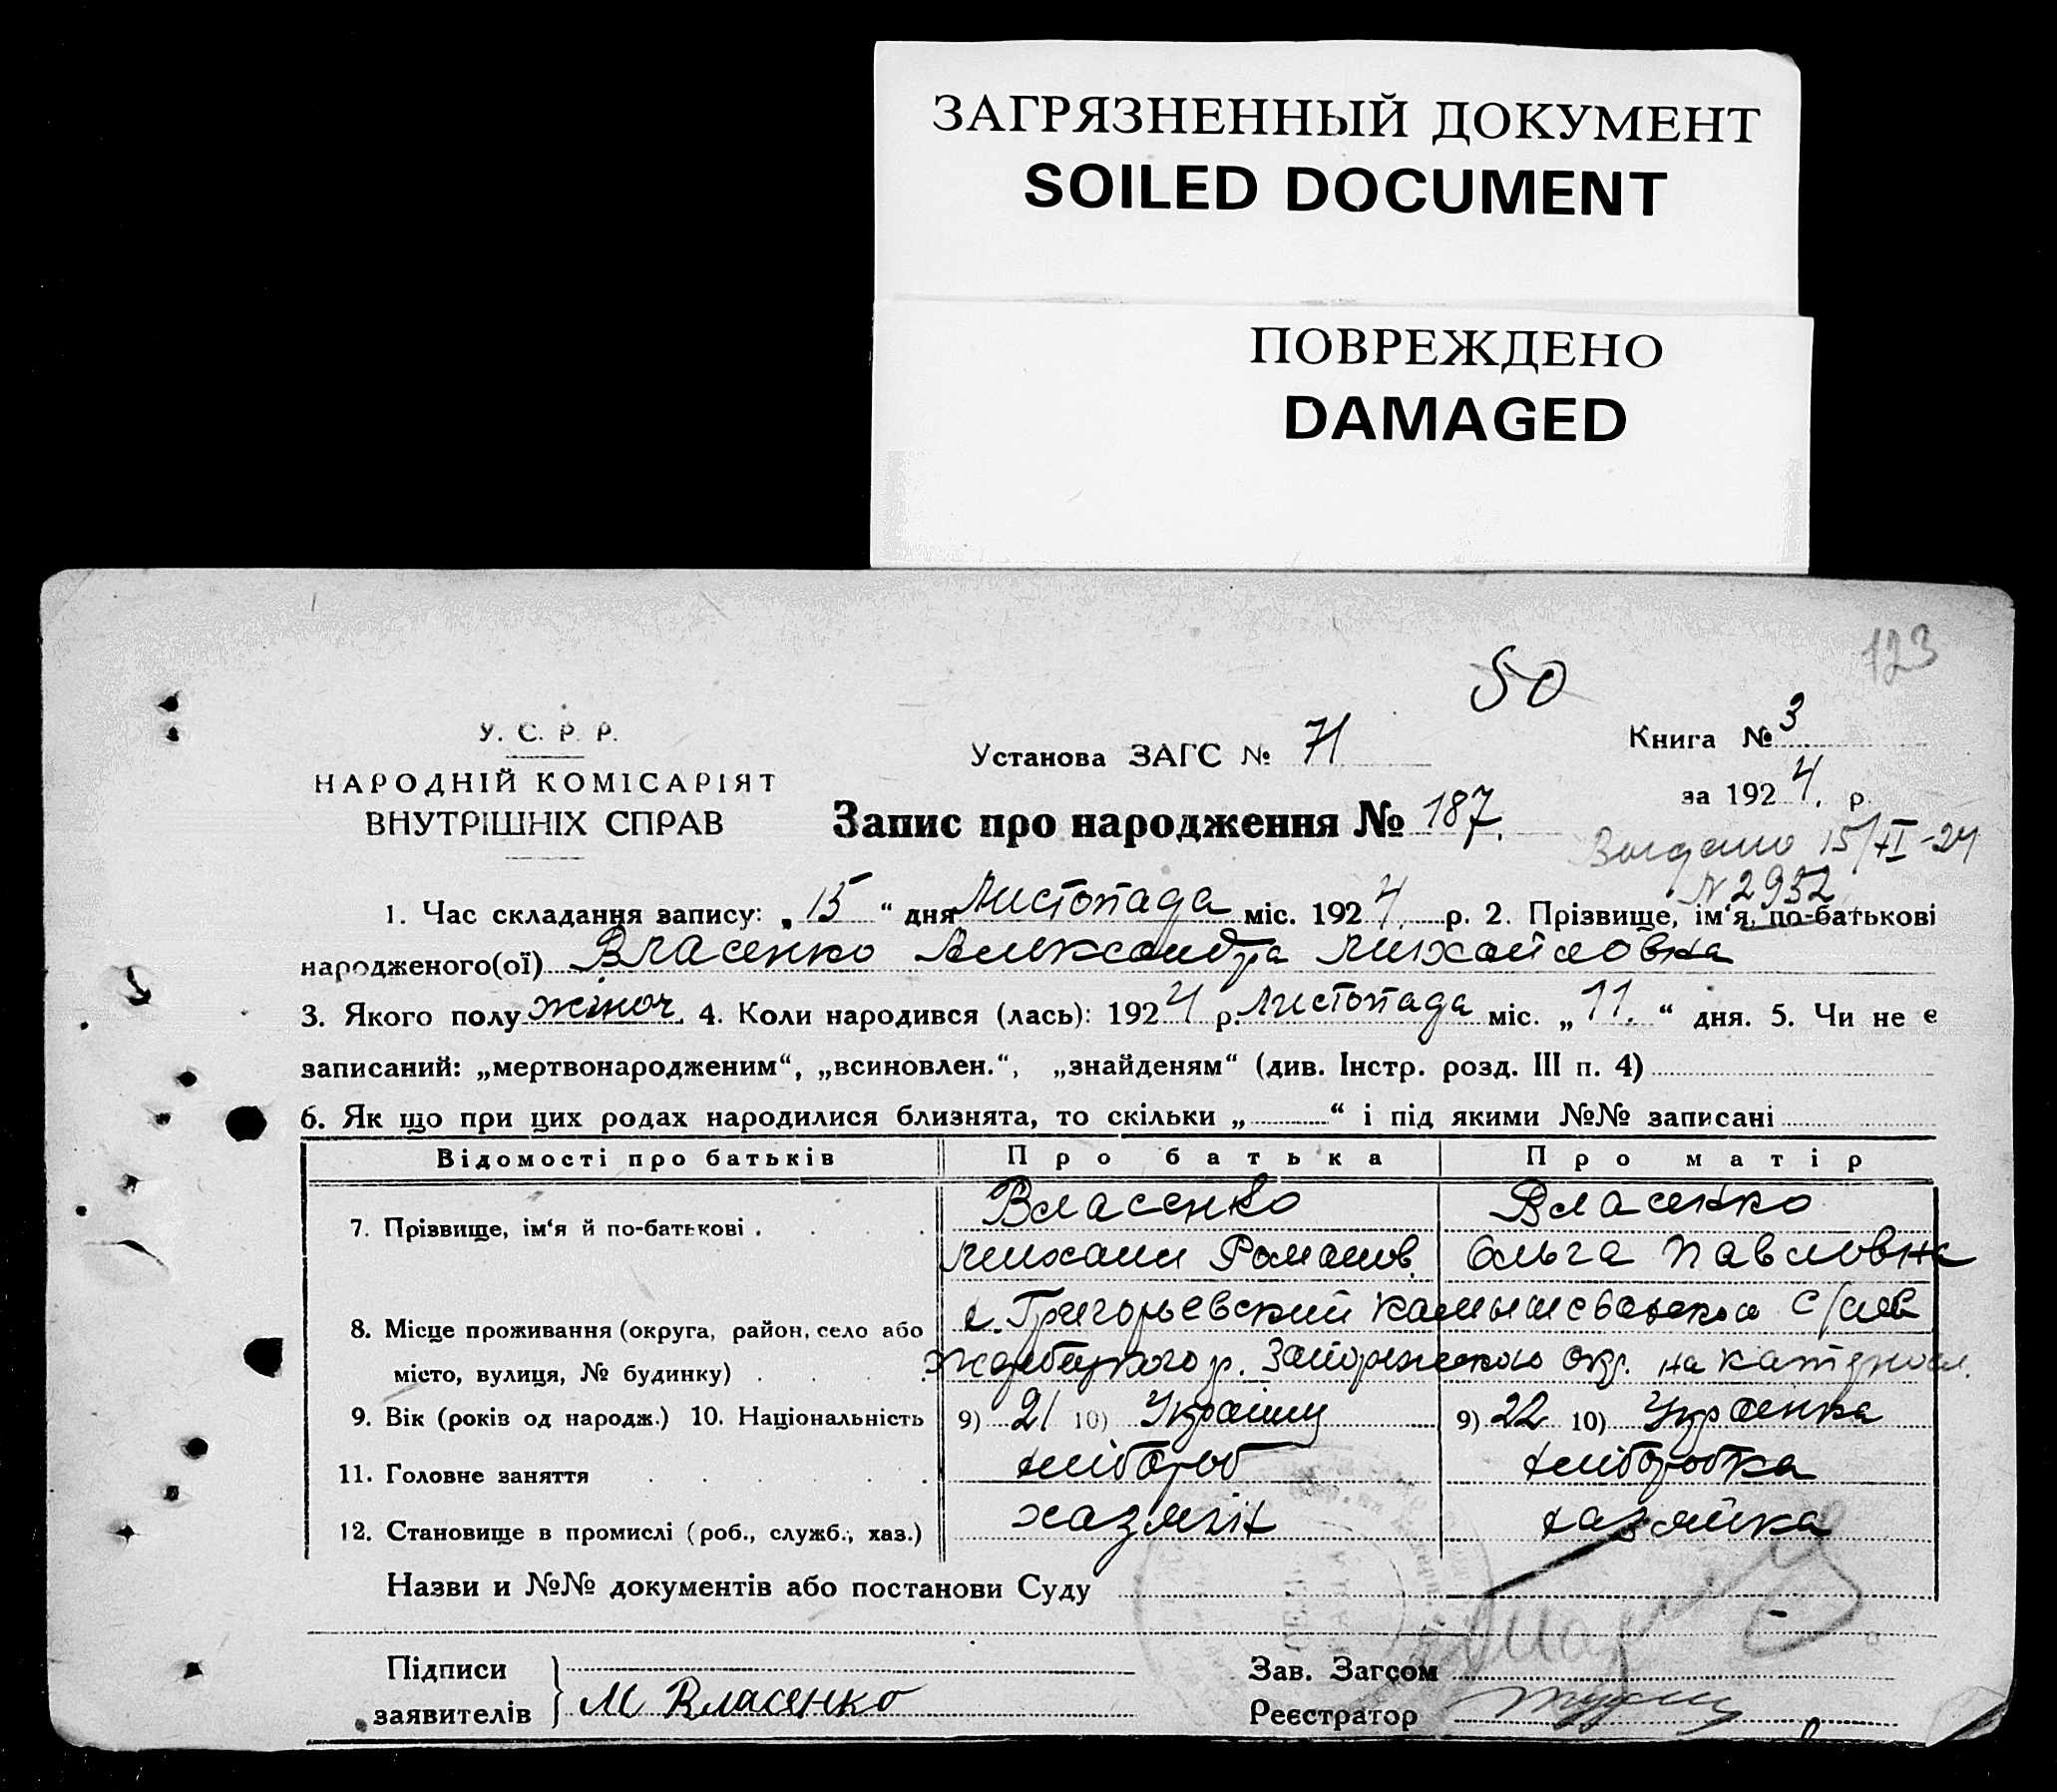 ЗАГРЯЗНЕННЫЙ ДОКУМЕНТ
SOILED DOCUMENT
ПОВРЕЖДЕНО
DAMAGED
123
50
У. С. Р. Р.
НАРОДНІЙ КОМІСАРІЯТ
ВНУТРІШНІХ СПРАВ
Установа ЗАГС № 71
Книга № 3
за 1924. р.
Запис про народження № 187.
15/XI-24
N 2952
1. Час складання запису: „15“ дня Листопада міс. 1924 р. 2. Прізвище, ім‘я, по-батькові
народженого(ої) Власенко Александра Михайловна
3. Якого полу жіноч. 4. Коли народився (лась): 1924 р. Листопада міс. „11.“ дня. 5. Чи не є
записаний: „мертвонародженим“, „всиновлен.“, „знайденям“ (див. Інстр. розд. III п. 4)
6. Як що при цих родах народилися близнята, то скільки „ “ і під якими №№ записані
Відомості про батьків Про батька Про матір
7. Прізвище, ім‘я й по-батькові . Власенко Власенко
Михаил Романов. Ольга Павловна
8. Місце проживання (округа, район, село або х. Григорьевский
місто, вулиця, № будинку) р. Запорожского окр. на
9. Вік (років од народж.) 10. Національність 9) 21 10) Українц 9) 22 10) Українка
11. Головне заняття хлібороб хліборобка
12. Становище в промислі (роб., служб., хаз.) хазяін хазяйка
Назви и №№ документів або постанови Суду
Підписи
заявителів М Власенко
Зав. Загсом
Реєстратор